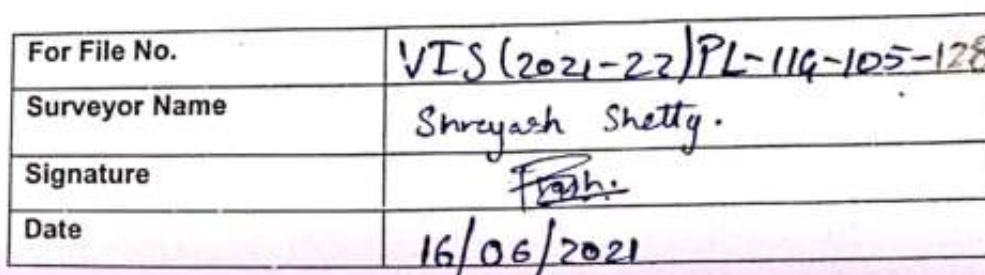 For File No. VIS (2021-22) PL-114-105-128
Surveyor Name Shreyash Shetty.
Signature
Date 16/06/2021